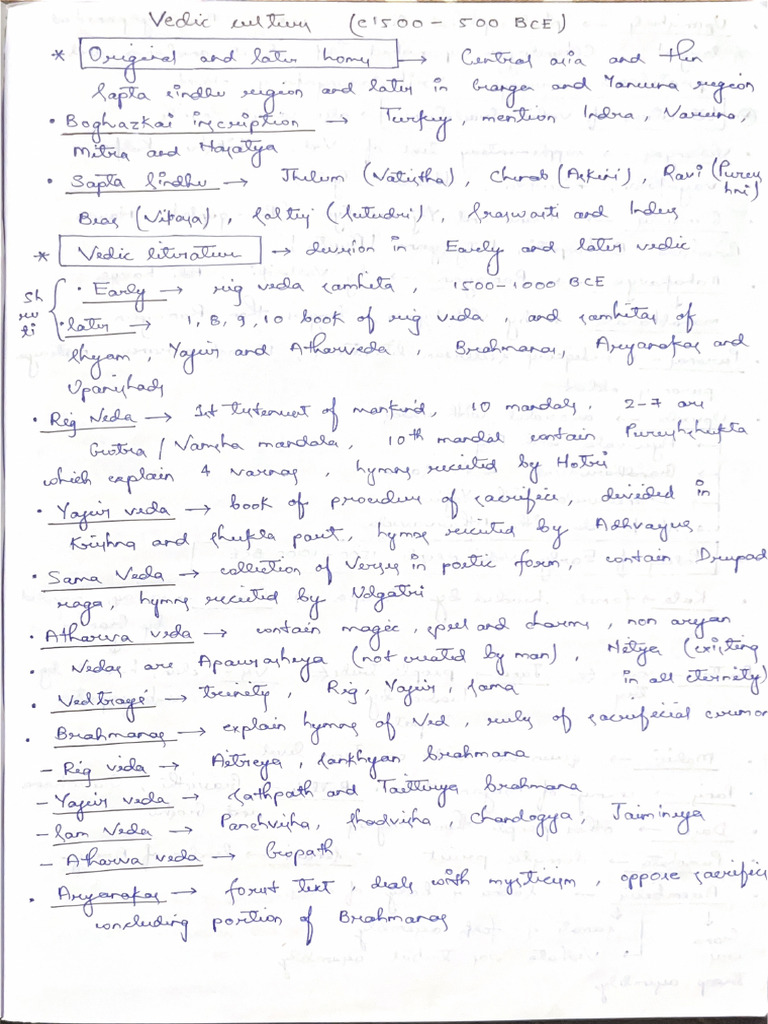 Vedic culture (c1500 - 500 BCE)
* Original and later home → Central asia and then
Sapta sindhu region and later in Ganga and Yamuna region
• Boghazkai inscription → Turkey, mention Indra, Varuna,
Mitra and Nasatya
• Sapta Sindhu → Jhelum (Vatistha), Chenab (Askini), Ravi (Purushni)
Beas (Vipasa), Satluj (Sutudri), Sraswati and Indus
* Vedic literature → division in Early and later vedic
Shruti
• Early → rig veda samhita, 1500-1000 BCE
• later → 1, 8, 9, 10 book of rig veda, and samhitas of
Shyam, Yajur and Atharveda, Brahmanas, Aryanakas and
Upanishads
• Rig Veda → 1st testement of mankind, 10 mandals, 2-7 are
Gotra / Vamsha mandala, 10th mandal contain Purushshukta
which explain 4 varnas, hymns recited by Hotri
• Yajur veda → book of procedure of sacrifice, divided in
Krishna and Shukla part, hymns recited by Adhvayus
• Sama Veda → collection of verses in poetic form, contain Drupad
raga, hymns recited by Udgatri
• Atharva veda → contain magic, spell and charms, non aryan
• Vedas are Apaurasheya (not created by man), Nitya (existing
in all eternity)
• Vedtrayi → trinity, Rig, Yajur, Sama
• Brahmanas → explain hymns of Ved, rules of sacrificial ceremon
- Rig veda → Aitreya, Sankhyan brahmana
- Yajur veda → Sathpath and Taittiriya brahmana
- Sam Veda → Panchvisha, Shadvisha, Chandogya, Jaimineya
- Atharva veda → Gopath
• Aryanakas → forest text, deals with mysticism, oppose sacrifice
concluding portion of Brahmanas